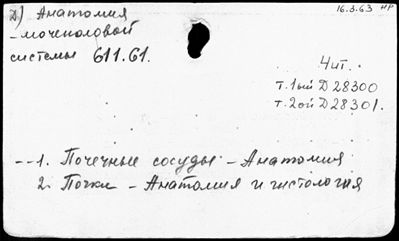 16.3.63 НР
Д) Анатомия
-мочеполовой
системы 611.61.
Чит.
т.1ый Д28300
т.2ой Д28301.
--1. Почечные сосуды - Анатомия
2. Почки - Анатомия и гистология